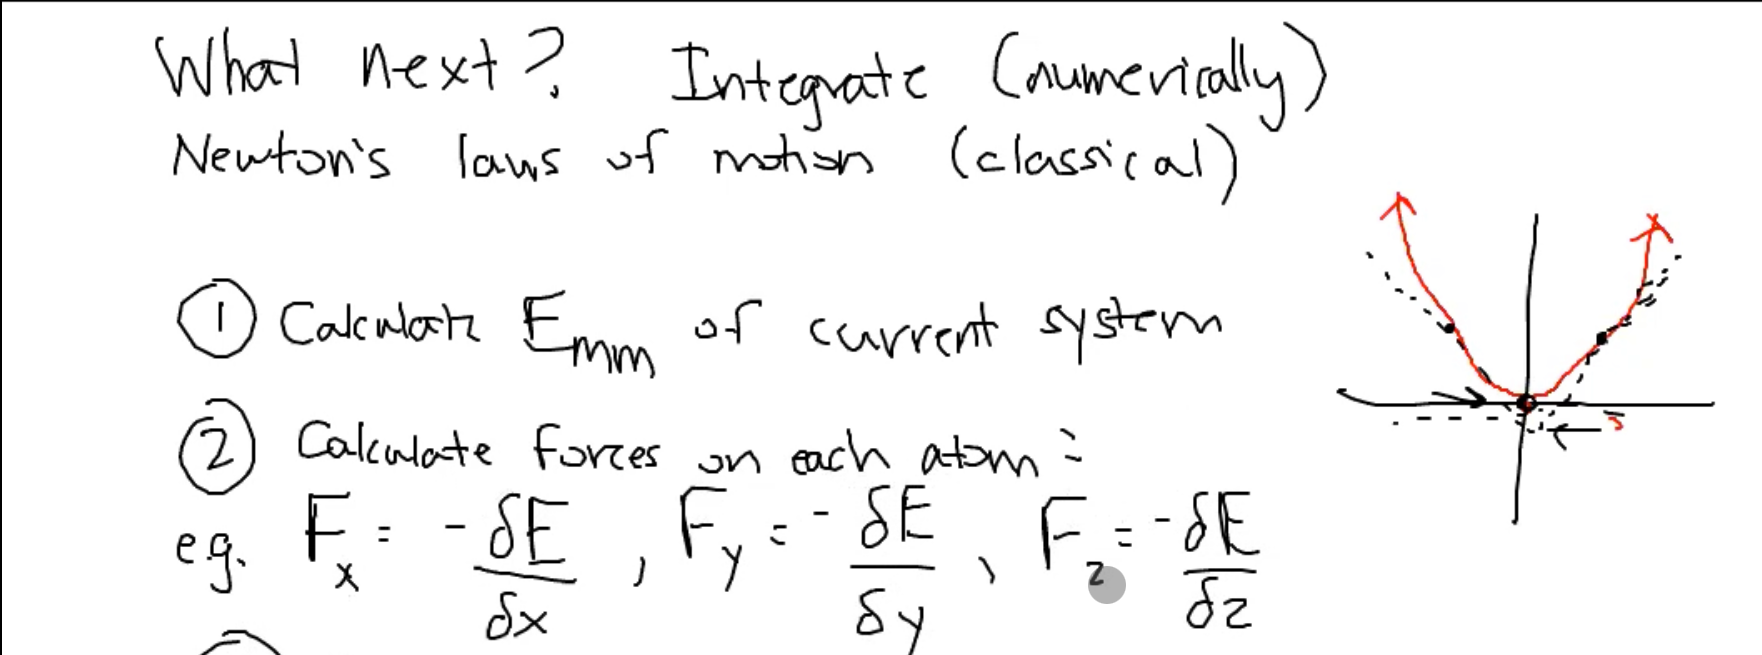 What next? Integrate (numerically)
Newton's laws of motion (classical)
① Calculate Emm of current system
② Calculate forces on each atom:
e.g. Fx = -δE/δx, Fy = -δE/δy, Fz = -δE/δz